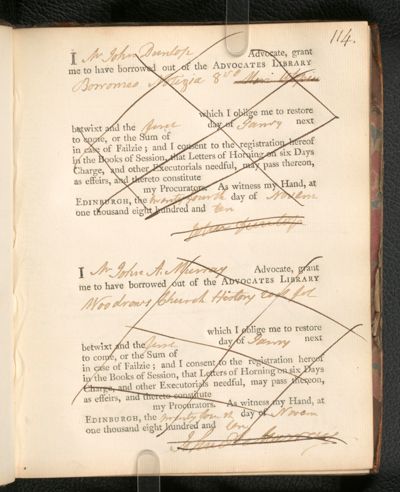 114.
I Mr John Dunlop Advocate, grant
me to have borrowed out of the ADVOCATES LIBRARY
Borromeo Notizia 8vo
which I oblige me to restore
betwixt and the first day of Janry next
to come, or the Sum of
in case of Failzie; and I consent to the registration hereof
in the Books of Session, that Letters of Horning on six Days
Charge, and other Executorials needful, may pass thereon,
as effeirs, and thereto constitute
my Procurators. As witness my Hand, at
EDINBURGH, the twenty fourth day of Novem
one thousand eight hundred and ten
John Dunlop
I Mr John A. Murray Advocate, grant
me to have borrowed out of the ADVOCATES LIBRARY
Woodrows Church History fol
which I oblige me to restore
betwixt and the first day of Janry next
to come, or the Sum of
in case of Failzie; and I consent to the registration hereof
in the Books of Session, that Letters of Horning on six Days
Charge, and other Executorials needful, may pass thereon,
as effeirs, and thereto constitute
my Procurators. As witness my Hand, at
EDINBURGH, the twenty fourth day of Novem
one thousand eight hundred and ten
John A. Murray